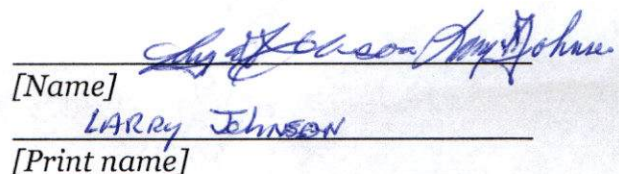 Larry Johnson Larry Johnson
[Name]
LARRY JOHNSON
[Print name]